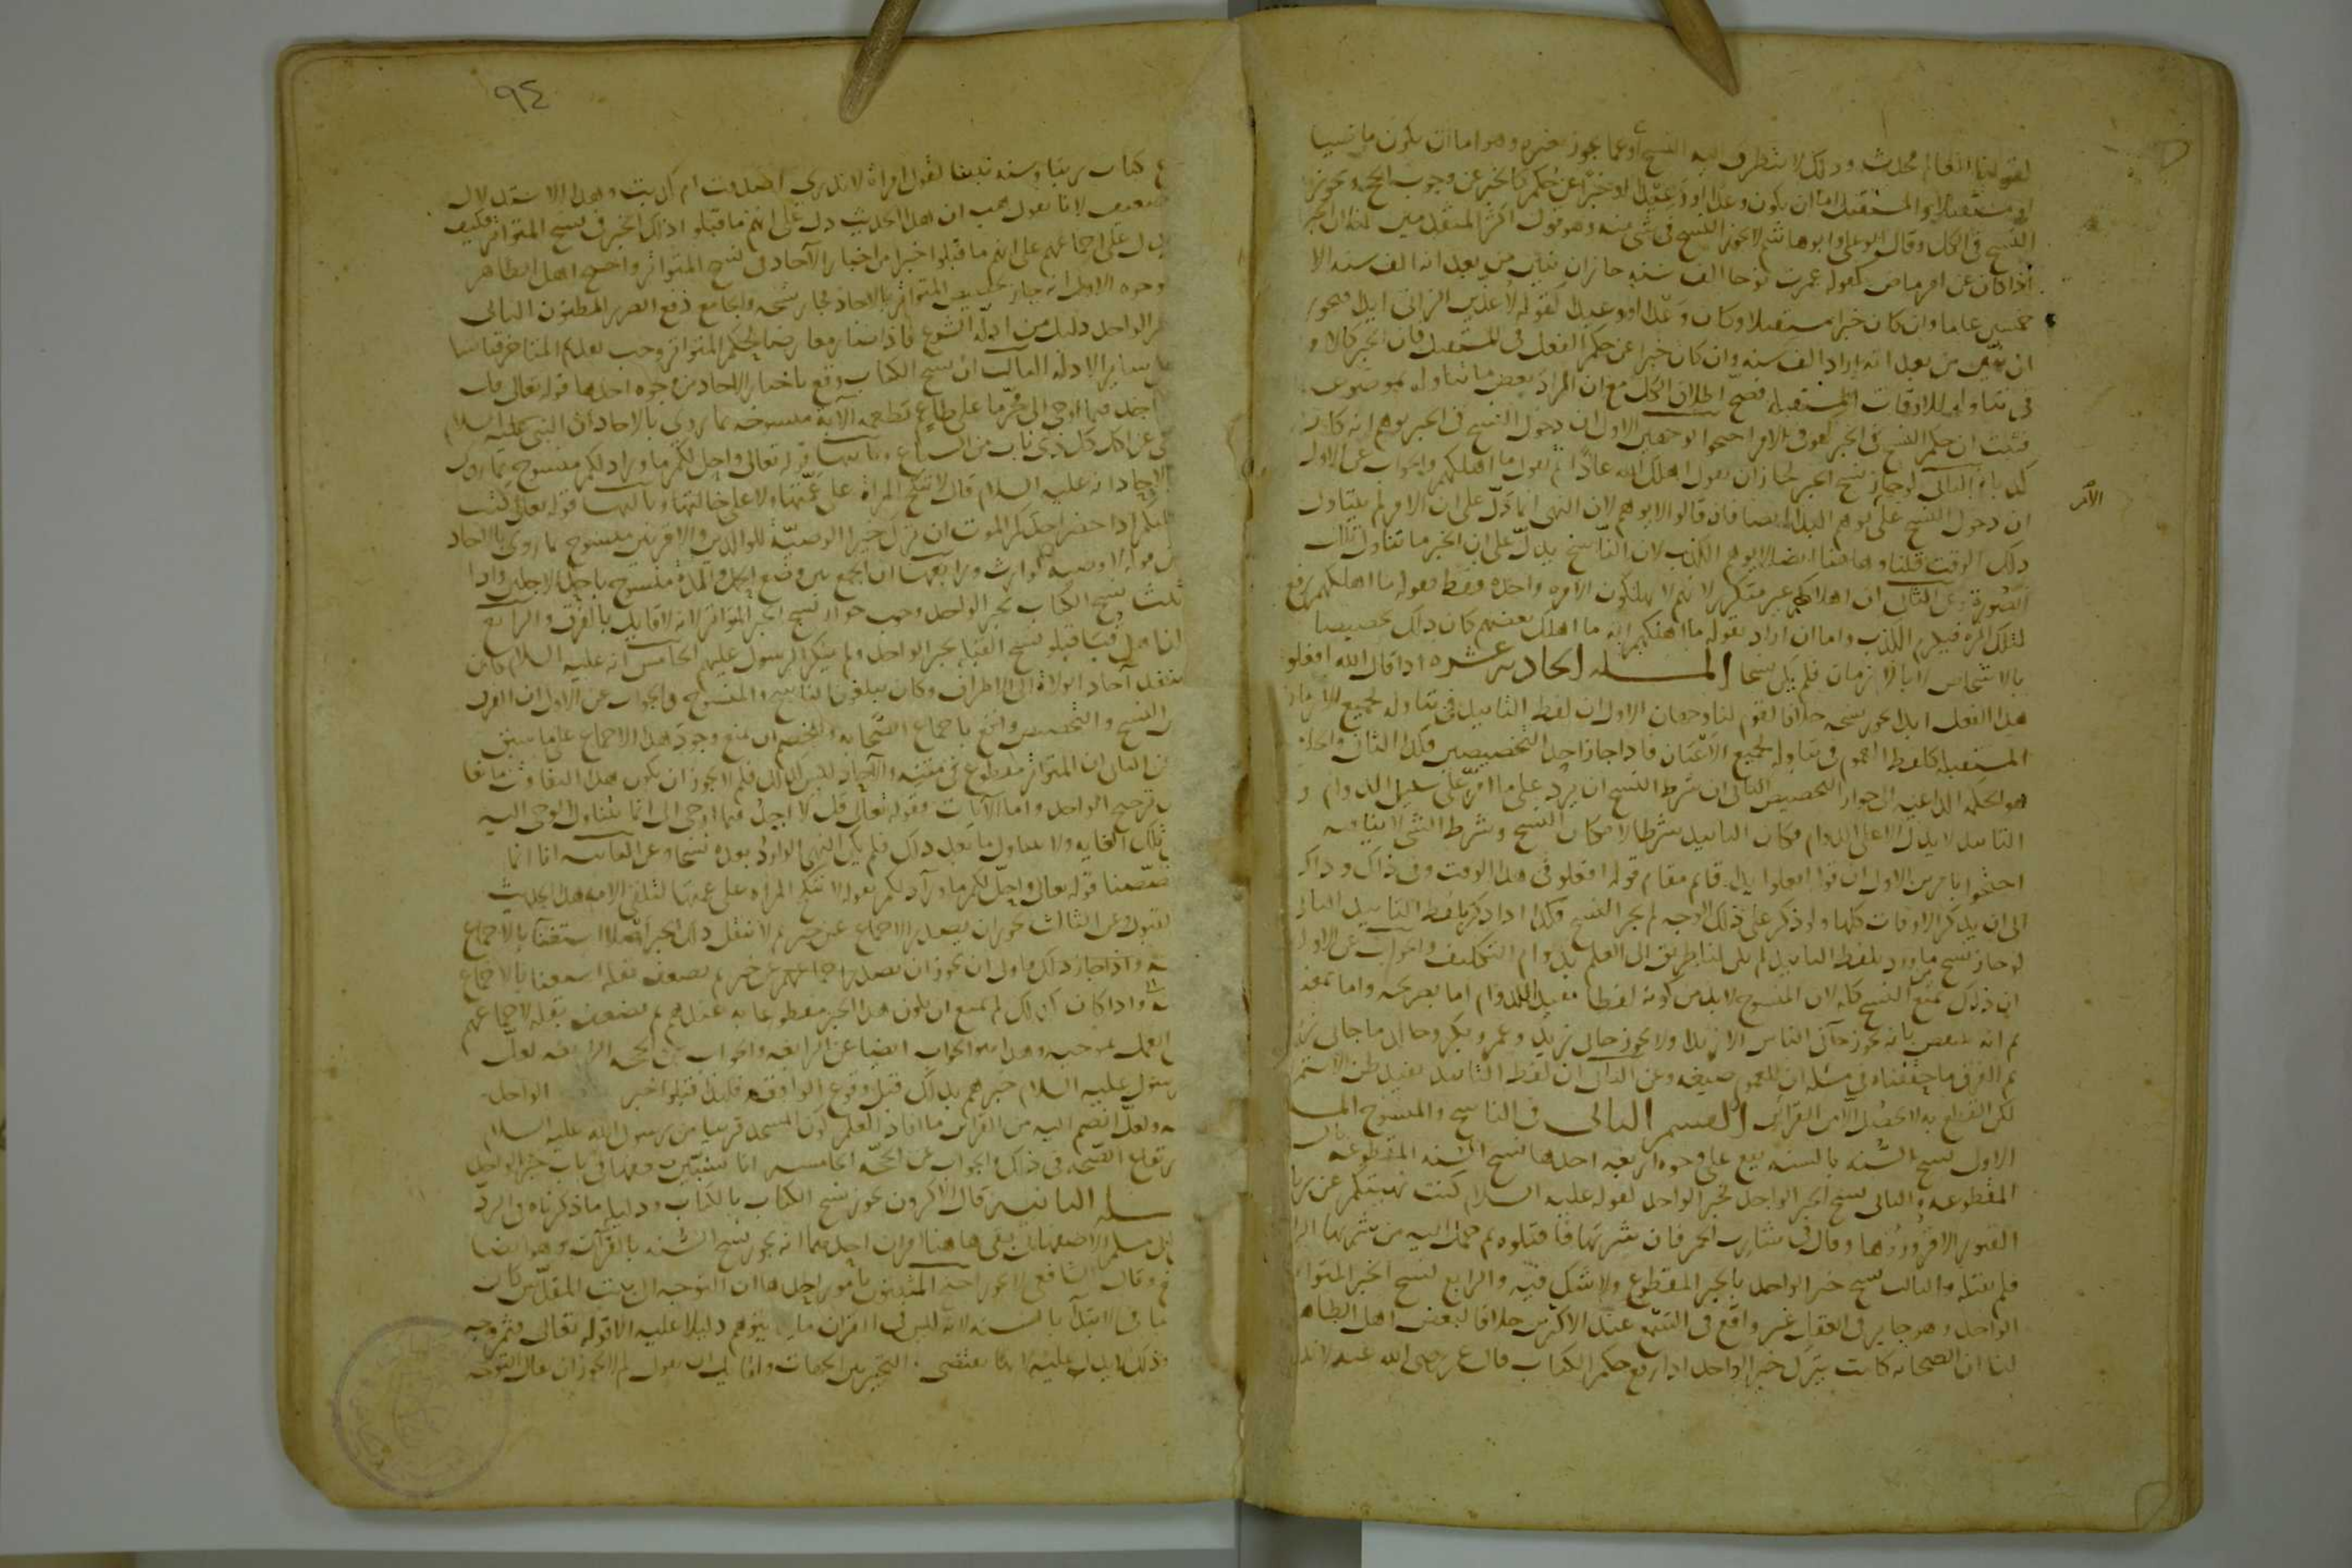 لقولنا العالم محدث وذلك لا يتطرق اليه النسخ او عما يجوز تغيره وهو اما ان يكون ماضيا
او مستقبلا والمستقبل اما ان يكون وعدا او وعيدا او خبرا عن حكم كالخبر عن وجوب الحج ويجوز
النسخ في الكل وقال ابو علي وابو هاشم لا يجوز النسخ في شي منه وهو قول اكثر المتقدمين لنا ان الخبر
اذا كان عن امر ماض كقوله عمرت نوحا الف سنه جاز ان يبين من بعد انه الف سنه الا
خمسين عاما وان كان خبرا مستقبلا وكان وعدا او وعيدا كقوله لاعذبن الزاني ابدا فيجوز
ان يبين من بعد انه اراد الف سنه وان كان خبرا عن حكم الفعل في المستقبل فان الخبر كالامر
في تناوله للاوقات المستقبله فصح اطلاق الكل مع ان المراد بعض ما تناوله بموضوعه
فثبت ان حكم النسخ في الخبر كهو في الامر احتجوا بوجهين الاول ان دخول النسخ في الخبر يوهم انه كان
كذبا الثاني لو جاز نسخ الخبر لجاز ان يقول اهلك الله عادا ثم يقول ما اهلكهم والجواب عن الاول
ان دخول النسخ على الامر يوهم البدا ايضا فان قالوا لا يوهم لان النهي انما دل على ان الامر لم يتناول
الأمر
ذلك الوقت قلنا وهاهنا ايضا لا يوهم الكذب لان الناسخ يدل على ان الخبر ما تناول تلك
الصورة وعن الثاني ان اهلاكهم غير متكرر لانهم لا يهلكون الا مره واحده فقط فقوله ما اهلكهم رفع
لتلك المره فيلزم الكذب واما ان اراد بقوله ما اهلكهم انه ما اهلك بعضهم كان ذلك تخصيصا
بالاشخاص لا بالازمان فلم يكن نسخا المسله الحاديه عشره اذا قال الله افعلوا
هذا الفعل ابدا يجوز نسخه خلافا لقوم لنا وجهان الاول ان لفظ التابيد في تناوله لجميع الازمان
المستقبله كلفظ العموم في تناوله لجميع الاعيان فاذا جاز احد التخصيصين فكذا الثاني والجامع
هو الحكمه الداعيه الى جواز التخصيص الثاني ان شرط النسخ ان يرد على ما امر على سبيل الدوام و
التابيد لا يدل الا على الدوام فكان التابيد شرطا لامكان النسخ وشرط الشي لا ينافيه
احتجوا بامرين الاول ان قوله افعلوا ابدا قائم مقام قوله افعلوا في هذا الوقت وفي ذاك وذاك
الى ان يذكر الاوقات كلها ولو ذكر على ذلك الوجه لم يجز النسخ فكذا اذا ذكر بلفظ التابيد الثاني
لو جاز نسخ ما ورد بلفظ التابيد لم يكن لنا طريق الى العلم بدوام التكليف والجواب عن الاول
ان ذلك يمنع النسخ كله لان المنسوخ لا بد من كونه لفظا مفيدا للدوام اما بصريحه واما بمعناه
ثم انه ينقض بانه يجوز جاني الناس الا زيدا ولا يجوز جاني زيد وعمرو وبكر وخالد ما جاني زيد
ثم الفرق ما حققناه في مسله ان للعموم صيغه وعن الثاني ان لفظ التابيد يفيد ظن الاستمرار
لكن القطع به لا يحصل الا من القرائن القسم الثاني في الناسخ والمنسوخ المسله
الاول نسخ السنه بالسنه يقع على وجوه اربعه احدها نسخ السنه المقطوعه بالسنه
المقطوعه والثاني نسخ الخبر الواحد بخبر الواحد كقوله عليه السلام كنت نهيتكم عن زياره
القبور الا فزوروها وقال في شارب الخمر فان شربها فاقتلوه ثم حمل اليه من شربها الرابعه
فلم يقتله والثالث نسخ خبر الواحد بالخبر المقطوع ولا شك فيه والرابع نسخ الخبر المتواتر بخبر
الواحد وهو جايز في العقل غير واقع في السمع عند الاكثرين خلافا لبعض اهل الظاهر
لنا ان الصحابه كانت تترك خبر الواحد اذا رفع حكم الكتاب قال عمر رضي الله عنه لا ندع
٩٤
كتاب ربنا وسنه نبينا لقول امراة لا ندري اصدقت ام كذبت وهذا الاستدلال
ضعيف لانا نقول هب ان هذا الحديث دل على انهم ما قبلوا ذلك الخبر في نسخ المتواتر فكيف
يدل على اجماعهم على انهم ما قبلوا خبرا من اخبار الآحاد في نسخ المتواتر واحتج اهل الظاهر
بوجوه الاول انه جاز تخصيص المتواتر بالاحاد فجاز نسخه والجامع دفع الضرر المظنون الثاني
خبر الواحد دليل من ادلة الشرع فاذا صار معارضا لحكم المتواتر وجب تقديم المتاخر قياسا
على ساير الادله الثالث ان نسخ الكتاب وقع باخبار الاحاد من وجوه احدها قوله تعالى قل
لا اجد فيما اوحي الي محرما على طاعم يطعمه الآيه منسوخه بما روي بالاحاد ان النبي عليه السلام
نهى عن اكل كل ذي ناب من السباع وثانيها قوله تعالى واحل لكم ما وراء ذلكم منسوخ بما روي
بالاحاد انه عليه السلام قال لا تنكح المراة على عمتها ولا على خالتها وثالثها قوله تعالى كتب
عليكم اذا حضر احدكم الموت ان ترك خيرا الوصية للوالدين والاقربين منسوخ بما روي بالاحاد
من قوله لا وصيه لوارث ورابعها ان الجمع بين وضع الحمل والمده منسوخ باحد الاجلين واذا
ثبت نسخ الكتاب بخبر الواحد وجب جواز نسخ الخبر المتواتر لانه لا قايل بالفرق والرابع
ان اهل قبا قبلوا نسخ القبله بخبر الواحد ولم ينكر الرسول عليهم الخامس انه عليه السلام كان
ينفذ آحاد الولاة الى الاطراف وكان يبلغون الناسخ والمنسوخ والجواب عن الاول ان الفرق
بين النسخ والتخصيص واقع باجماع الصحابه وللخصم ان يمنع وجود هذا الاجماع على ما سبق
وعن الثاني ان المتواتر مقطوع في متنه والآحاد ليس كذلك فلم لا يجوز ان يكون هذا التفاوت مانعا
من ترجيح الواحد واما الآيات فقوله تعالى قل لا اجد فيما اوحي الي انما يتناول الموحى اليه
الى تلك الغايه ولا يتناول ما بعد ذلك فلم يكن النهي الوارد بعده نسخا وعن الثانيه انا انما
خصصنا قوله تعالى واحل لكم ما وراء ذلكم بقوله لا تنكح المراه على عمتها لتلقي الامه هذا الحديث
بالقبول وعن الثالث يجوز ان يصدر الاجماع عن خبر ثم لا ينقل ذلك الخبر اصلا استغنا بالاجماع
عنه واذا جاز ذلك فاولى ان يجوز ان يصدر اجماعهم عن خبر ثم يضعف نقله استغنا بالاجماع
عنه واذا كان كذلك لم يمتنع ان يكون هذا الخبر مقطوعا به عندهم ثم يضعف نقله لاجماعهم
على العمل بموجبه وهذا هو الجواب ايضا عن الرابعه والجواب عن الحجه الرابعه لعل
رسول عليه السلام خبرهم بذلك قبل وقوع الواقعه فلهذا قبلوا خبر الواحد
فيه ولعله انضم اليه من القرائن ما افاد العلم لكون المسجد قريبا من رسول الله عليه السلام
وارتفاع الضجه في ذلك والجواب عن الحجة الخامسه انا سنبين ضعفها في باب خبر الواحد
المسله الثانيه قال الاكثرون يجوز نسخ الكتاب بالكتاب ودليله ما ذكرناه في الرد
على ابي مسلم الاصفهاني بقي هاهنا امران احدهما انه يجوز نسخ السنه بالقرآن وهو ايضا
واقع وقال الشافعي لا يجوز احتج المثبتون بامور احدها ان التوجه الى بيت المقدس كان
واجبا في الابتدا بالسنه لانه ليس في القران ما يتوهم دليلا عليه الا قوله تعالى فثم وجه
الله وذلك لا يدل عليه لانها تقتضي التخيير بين الجهات ولقايل ان يقول لم لا يجوز ان يقال التوجه